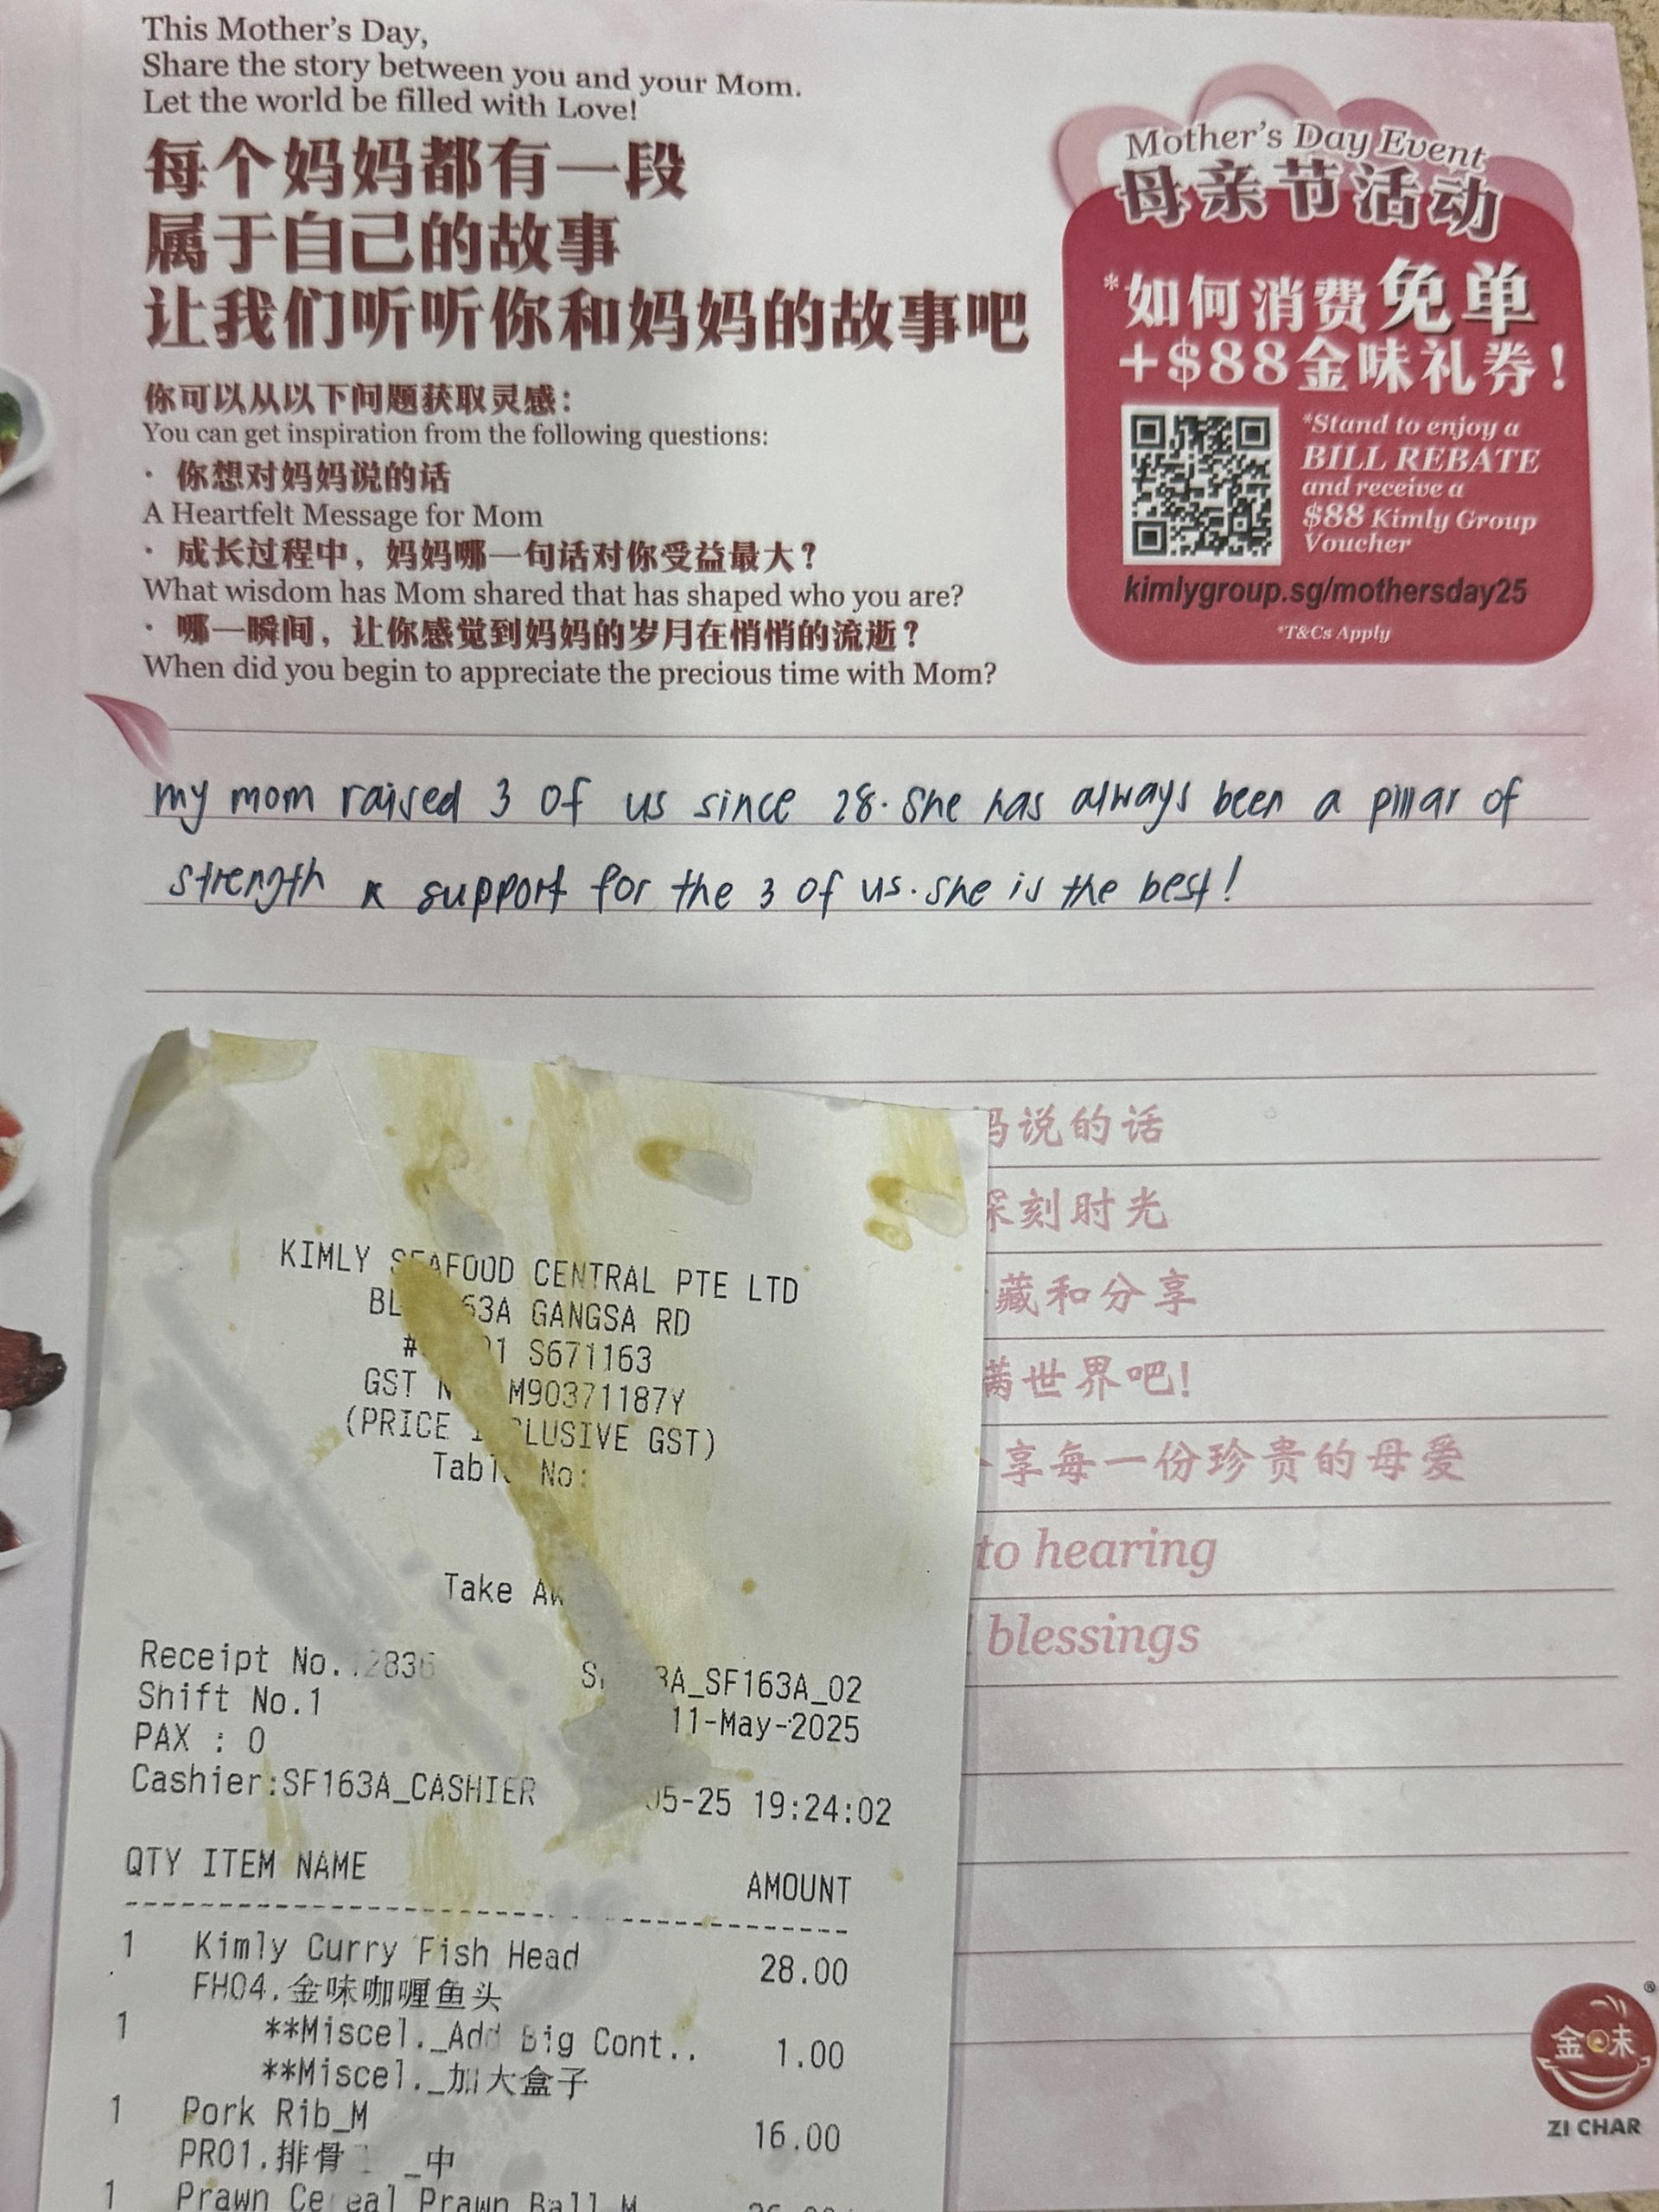 This Mother's Day,
Share the story between you and your Mom.
Let the world be filled with Love!
每个妈妈都有一段
属于自己的故事
让我们听听你和妈妈的故事吧
你可以从以下问题获取灵感：
You can get inspiration from the following questions:
· 你想对妈妈说的话
A Heartfelt Message for Mom
· 成长过程中，妈妈哪一句话对你受益最大？
What wisdom has Mom shared that has shaped who you are?
· 哪一瞬间，让你感觉到妈妈的岁月在悄悄的流逝？
When did you begin to appreciate the precious time with Mom?
Mother's Day Event
母亲节活动
*如何消费免单
+$88金味礼券！
*Stand to enjoy a
BILL REBATE
and receive a
$88 Kimly Group
Voucher
kimlygroup.sg/mothersday25
*T&Cs Apply
my mom raised 3 of us since 28. She has always been a pillar of
strength & support for the 3 of us. She is the best!
说的话
刻时光
藏和分享
世界吧!
享每一份珍贵的母爱
to hearing
blessings
KIMLY SEAFOOD CENTRAL PTE LTD
63A GANGSA RD
S671163
GST M90371187Y
(PRICE GST)
Table No:
Take
Receipt No.
SF163A_02
Shift No.1
11-May-2025
PAX : 0
Cashier:SF163A_CASHIER
05-25 19:24:02
QTY ITEM NAME AMOUNT
1 Kimly Curry Fish Head 28.00
FH04.金味咖喱鱼头
1 **Miscel._Add Big Cont.. 1.00
**Miscel._加大盒子
1 Pork Rib_M 16.00
PR01.排骨 _中
1 Prawn Cereal Prawn Ball_M
金味
ZI CHAR